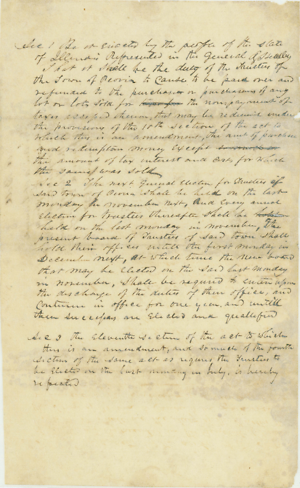 Sec 1 Be it enacted by the people of the state
of Illinois Represented in the General Assembly
That it shall be the duty of the Trustees of
the Town of Peoria to cause to be paid over and
refunded to the purchaser or purchasers of any
lot or lots sold for the nonpayment of
taxes assessed thereon, that may be redeemed under
the provisions of the 10th section of the act to
which this is an amendment, the
redemption money except
the amount of tax interest and cost for which
the same was sold
Sec 2 The next General election for Trustees of
said town of Peoria shall be held on the last
monday in november next, and every annual
election for Trustees thereafter shall be
held on the last monday in november, The
present board of Trustees of said town shall
hold their offices untill the first monday in
December next, at which time the new board
that may be elected on the said last Monday
in november, shall be required to enter upon
the discharge of the duties of their offices, and
continue in office for one year and untill
their successors are elected and quallified
Sec 3 the Eleventh section of the act to which
this is an amendment, and so much of the fourth
section of the same act as requires the Trustees to
be elected on the first monday in July, is hereby
repealed